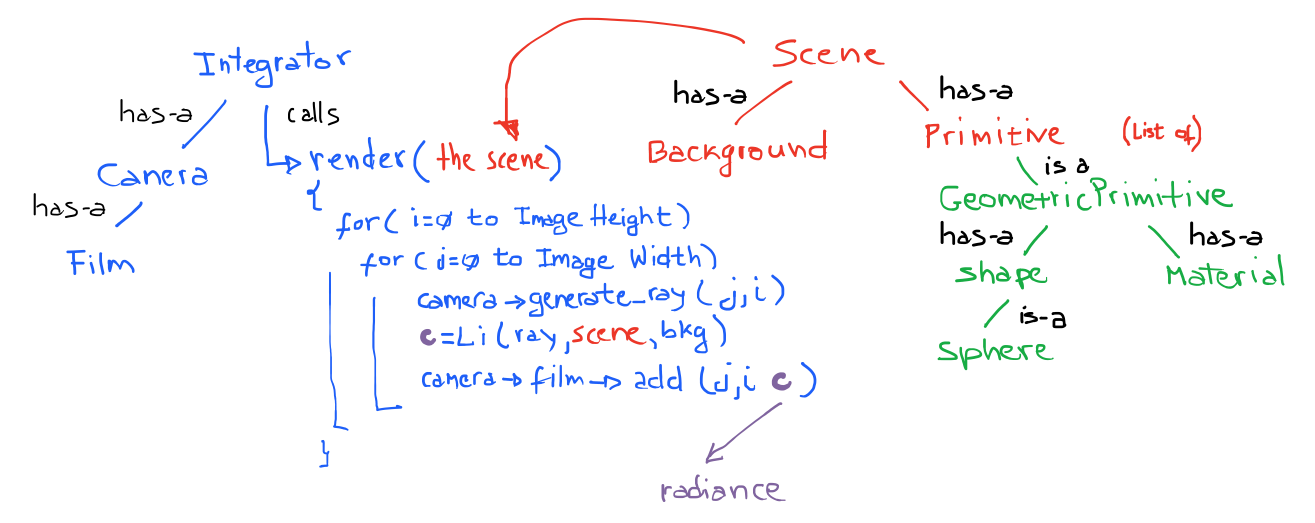 Integrator
has-a
calls
Canera
has-a
Film
render( the scene)
{
for( i=0 to Image Height)
for ( j=0 to Image Width)
camera→generate_ray (j,i)
c=Li(ray,scene,bkg)
camera→film→add (j,i c)
}
radiance
Scene
has-a
has-a
Background
Primitive (List of)
is a
GeometricPrimitive
has-a
has-a
shape
Material
is-a
Sphere